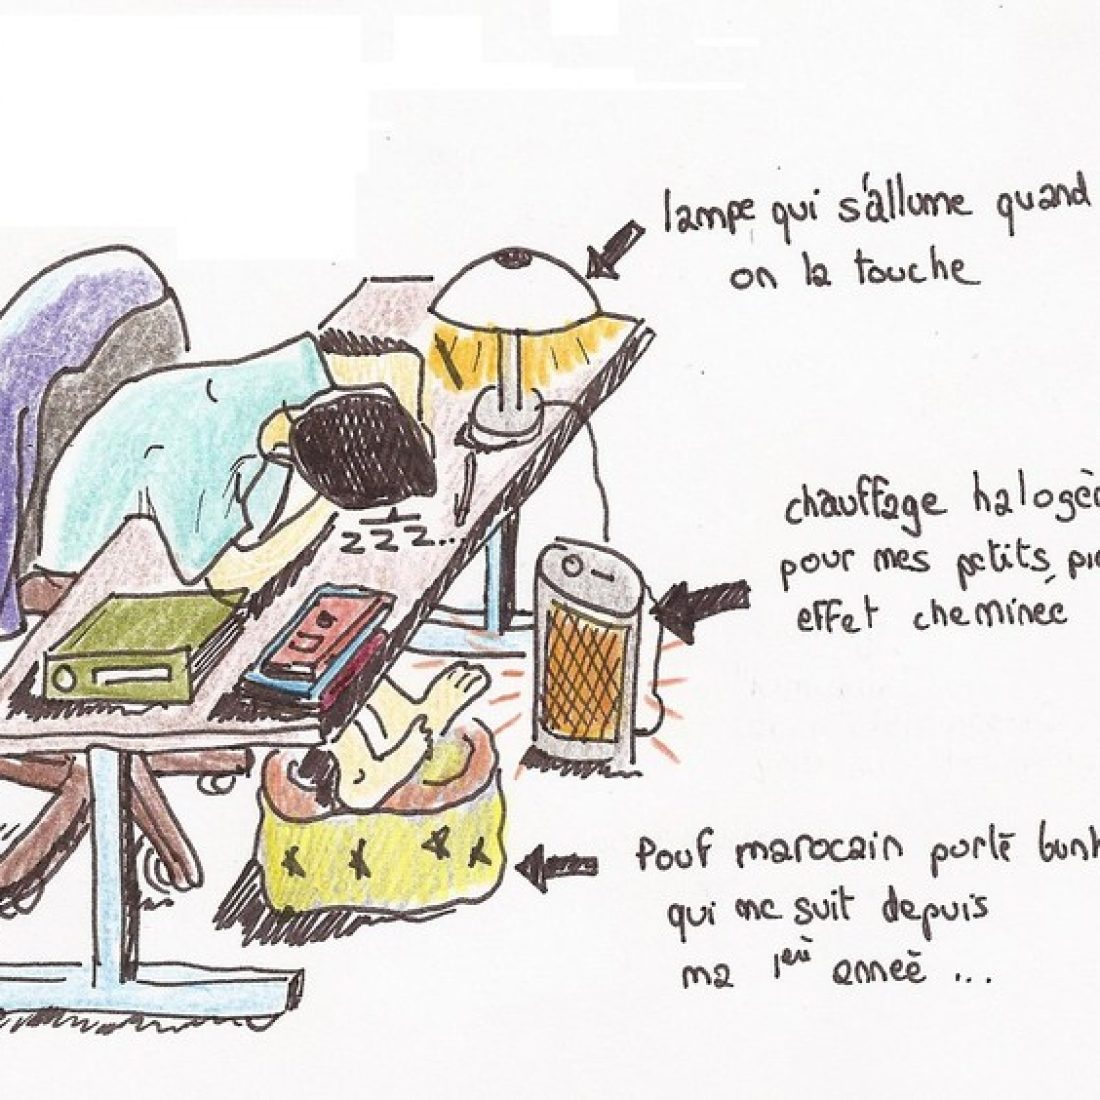 lampe qui s'allume quand
on la touche
zzz...
chauffage halogè
pour mes petits
effet cheminée
Pouf marocain porte
qui me suit depuis
ma 1ère année ...